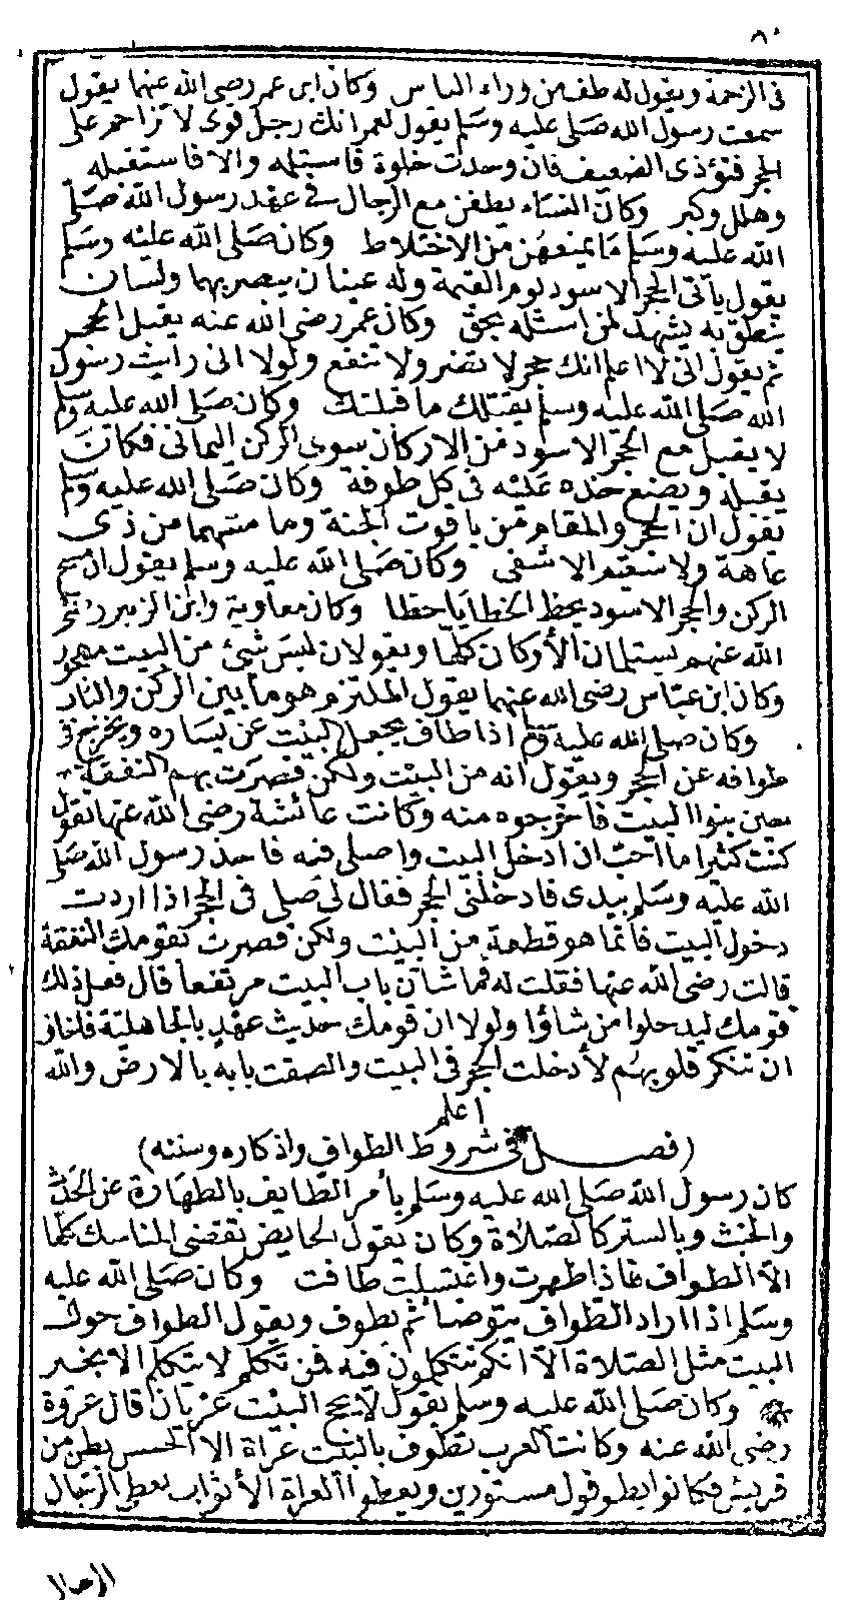 ٨٠
فى الزحمة ويقول له طف من وراء الناس وكان ابن عمر رضى الله عنهما يقول
سمعت رسول الله صلى عليه وسلم يقول لعمر انك رجل قوى لا تزاحم على
الحجر فتؤذى الضعيف فان وجدت خلوة فاستلمه والا فاستقبله
وهلل وكبر وكان النساء يطفن مع الرجال فى عهد رسول الله صلى
الله عليه وسلم ما يمنعهن من الاختلاط وكان صلى الله عليه وسلم
يقول يأتى الحجر الاسود يوم القيمة وله عينان يبصر بهما ولسان
ينطق به يشهد لمن استلمه بحق وكان عمر رضى الله عنه يقبل الحجر
ثم يقول انى لا اعلم انك حجر لا تضر ولا تنفع ولولا انى رأيت رسول
الله صلى الله عليه وسلم يقبلك ما قبلتك وكان صلى الله عليه وسلم
لا يقبل مع الحجر الاسود من الاركان سوى الركن اليمانى فكان
يقبله ويضع خده عليه فى كل طوفة وكان صلى الله عليه وسلم
يقول ان الحجر والمقام من ياقوت الجنة وما مسهما من ذى
عاهة ولا سقيم الا شفى وكان صلى الله عليه وسلم يقول ان مسح
الركن والحجر الاسود يحط الخطايا حطا وكان معاوية وابن الزبير رضى
الله عنهم يستلمان الأركان كلها ويقولان ليس شئ من البيت مهجور
وكان ابن عباس رضى الله عنهما يقول الملتزم هو ما بين الركن والباب
وكان صلى الله عليه وسلم اذا طاف يجعل البيت عن يساره ويخرج فى
طوافه عن الحجر ويقول انه من البيت ولكن قصرت بهم النفقة
حين بنوا البيت فأخرجوه منه وكانت عائشة رضى الله عنها تقول
كنت كثيرا ما احب ان ادخل البيت واصلى فيه فاخذ رسول الله صلى
الله عليه وسلم بيدى فادخلنى الحجر فقال لى صلى فى الحجر اذا اردت
دخول البيت فانما هو قطعة من البيت ولكن قصرت بقومك النفقة
قالت رضى الله عنها فقلت له فما شأن باب البيت مرتفعا قال فعل ذلك
قومك ليدخلوا من شاؤا ولولا ان قومك حديث عهد بالجاهلية فاخاف
ان تنكر قلوبهم لأدخلت الحجر فى البيت والصقت بابه بالارض والله
اعلم
(فصل فى شروط الطواف واذكاره وسننه)
كان رسول الله صلى الله عليه وسلم يأمر الطايف بالطهارة عن الحدث
والخبث وبالستر كالصلاة وكان يقول الحايض تقضى المناسك كلها
الا الطواف فاذا طهرت واغتسلت طافت وكان صلى الله عليه
وسلم اذا اراد الطواف يتوضأ ثم يطوف ويقول الطواف حول
البيت مثل الصلاة الا انكم تتكلمون فيه فمن تكلم لا يتكلم الا بخير
وكان صلى الله عليه وسلم يقول لا يحج البيت عريان قال عروة
رضى الله عنه وكانت العرب تطوف بالبيت عراة الا الحمس بطن من
قريش فكانوا يطوفون مستورين ويعطوا العراة الأثواب يعطى الرجال
الرجال